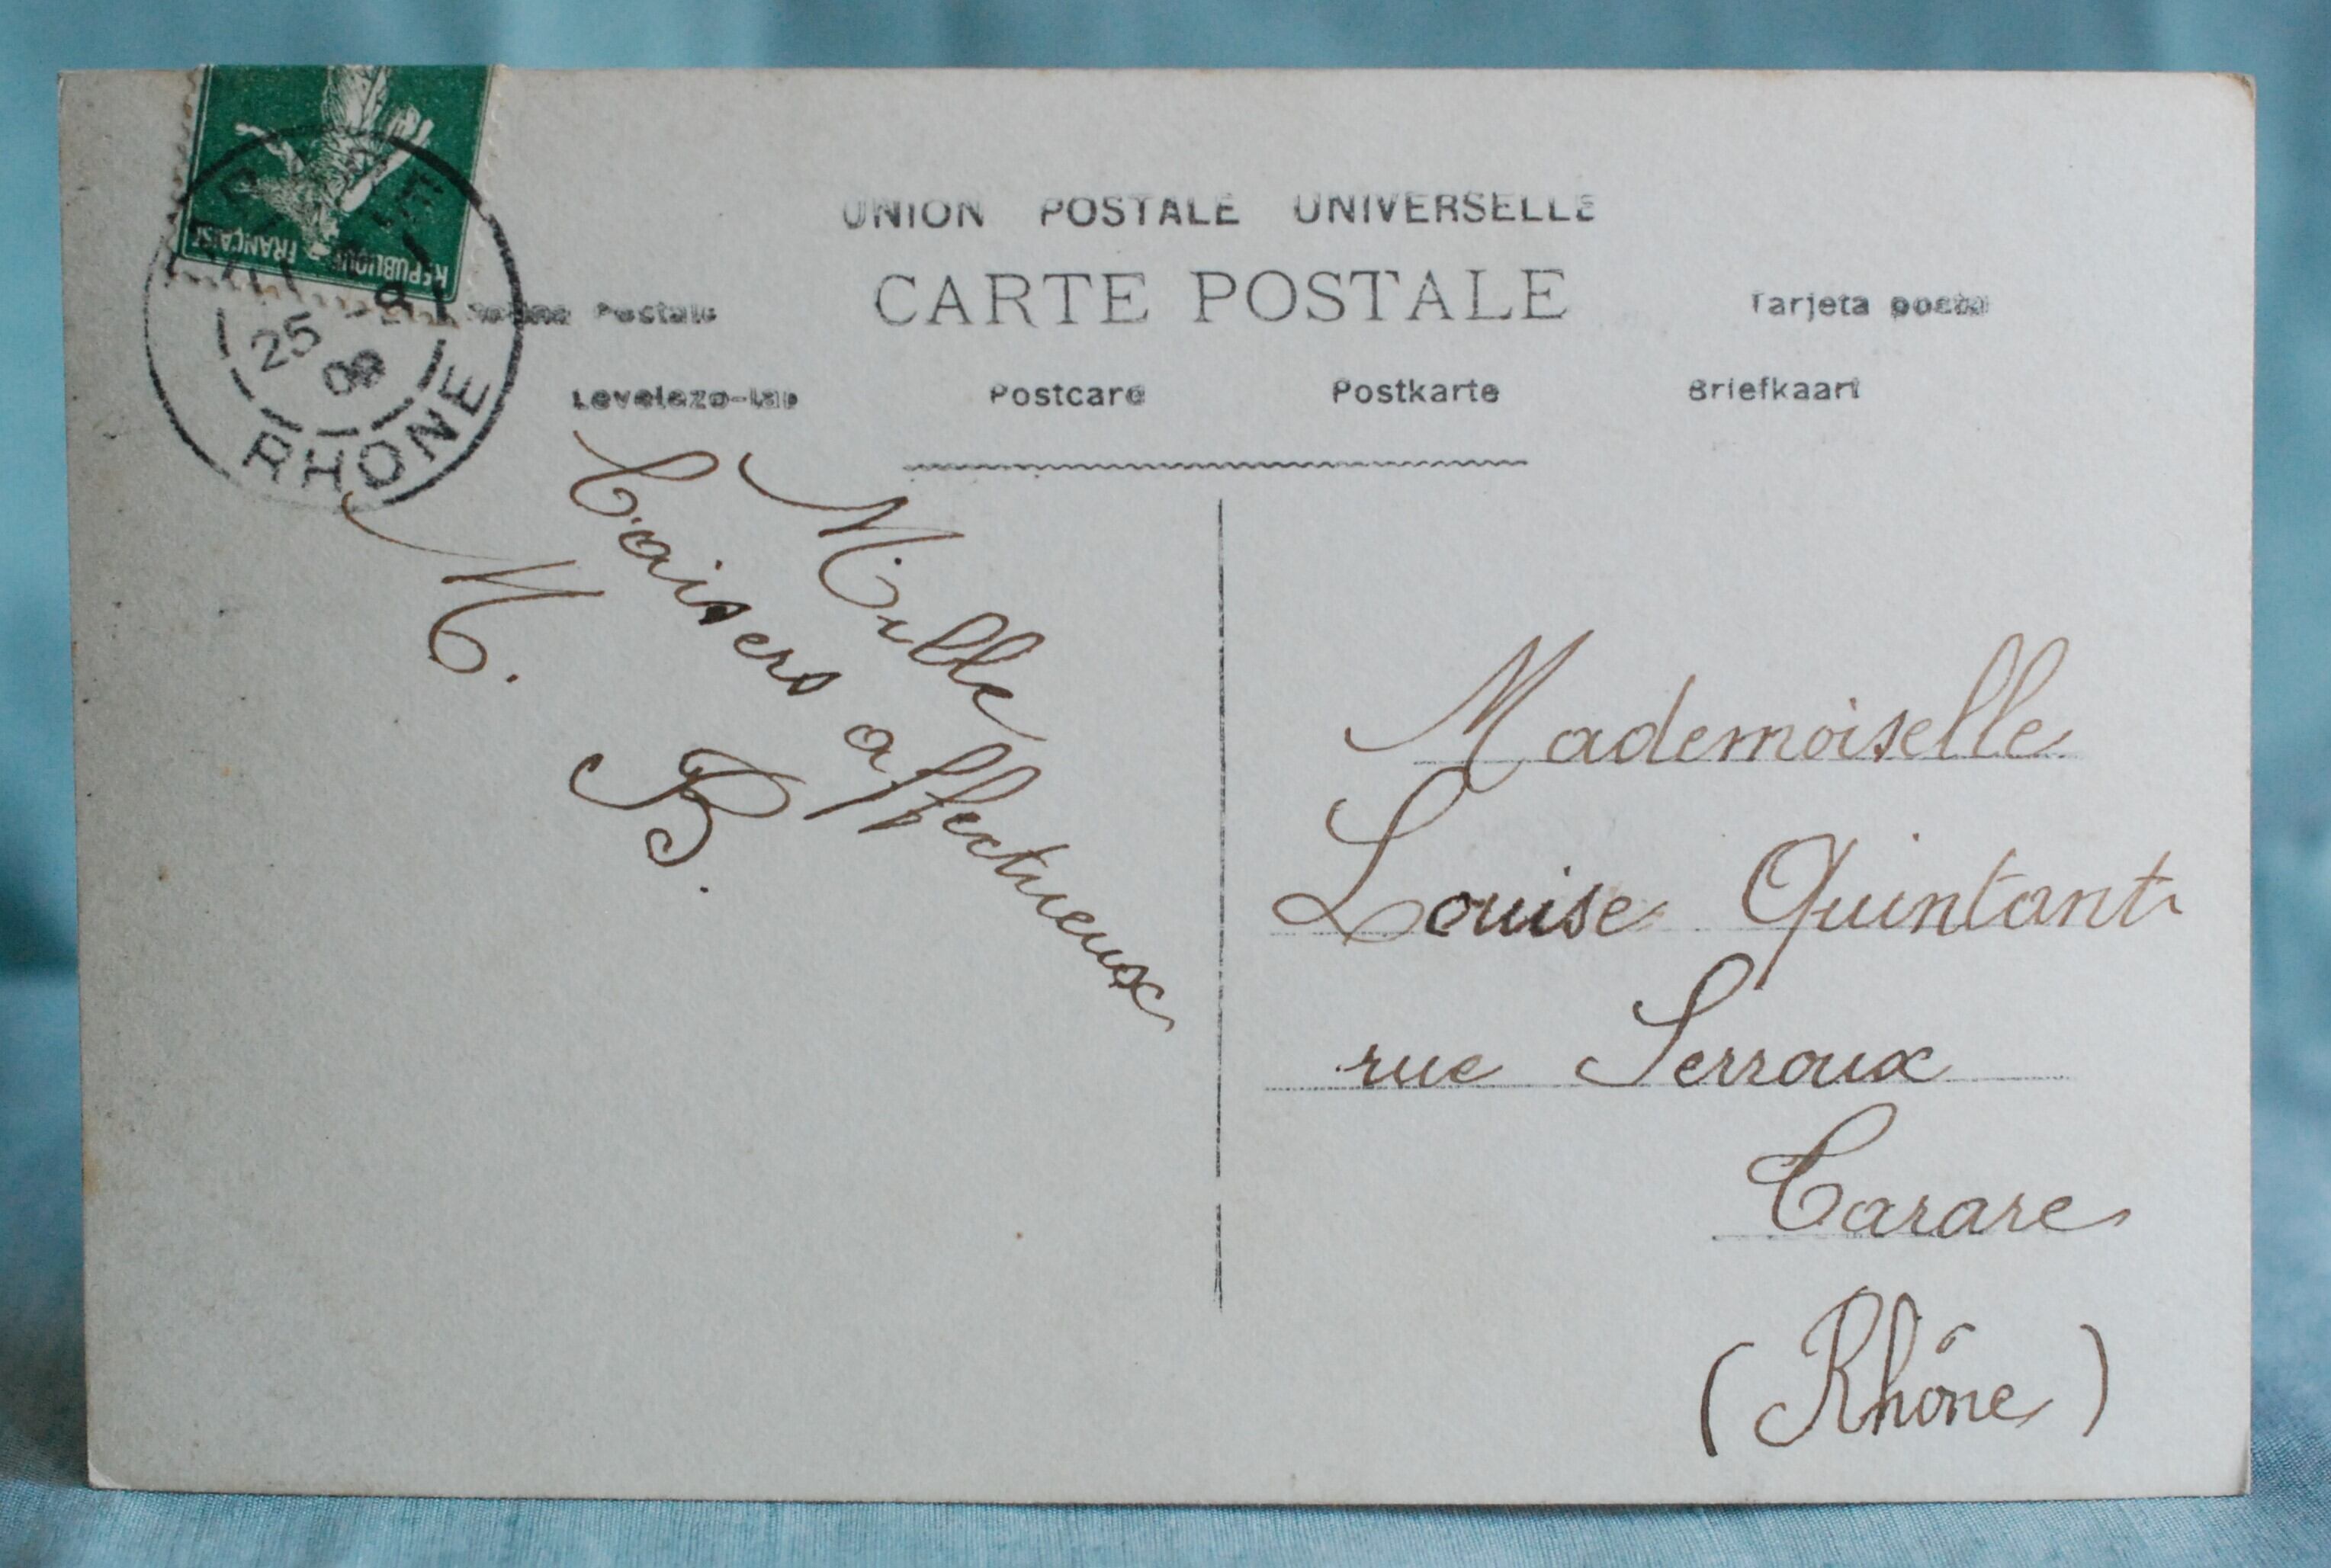 RÉPUBLIQUE FRANÇAISE
25 -8
09
RHONE
UNION POSTALE UNIVERSELLE
CARTE POSTALE
Tarjeta postal
Levelezo-lap Postcard Postkarte Briefkaart
Mille
baisers affectueux
M. B.
Mademoiselle
Louise Quintant
rue Serroux
Tarare
(Rhône)